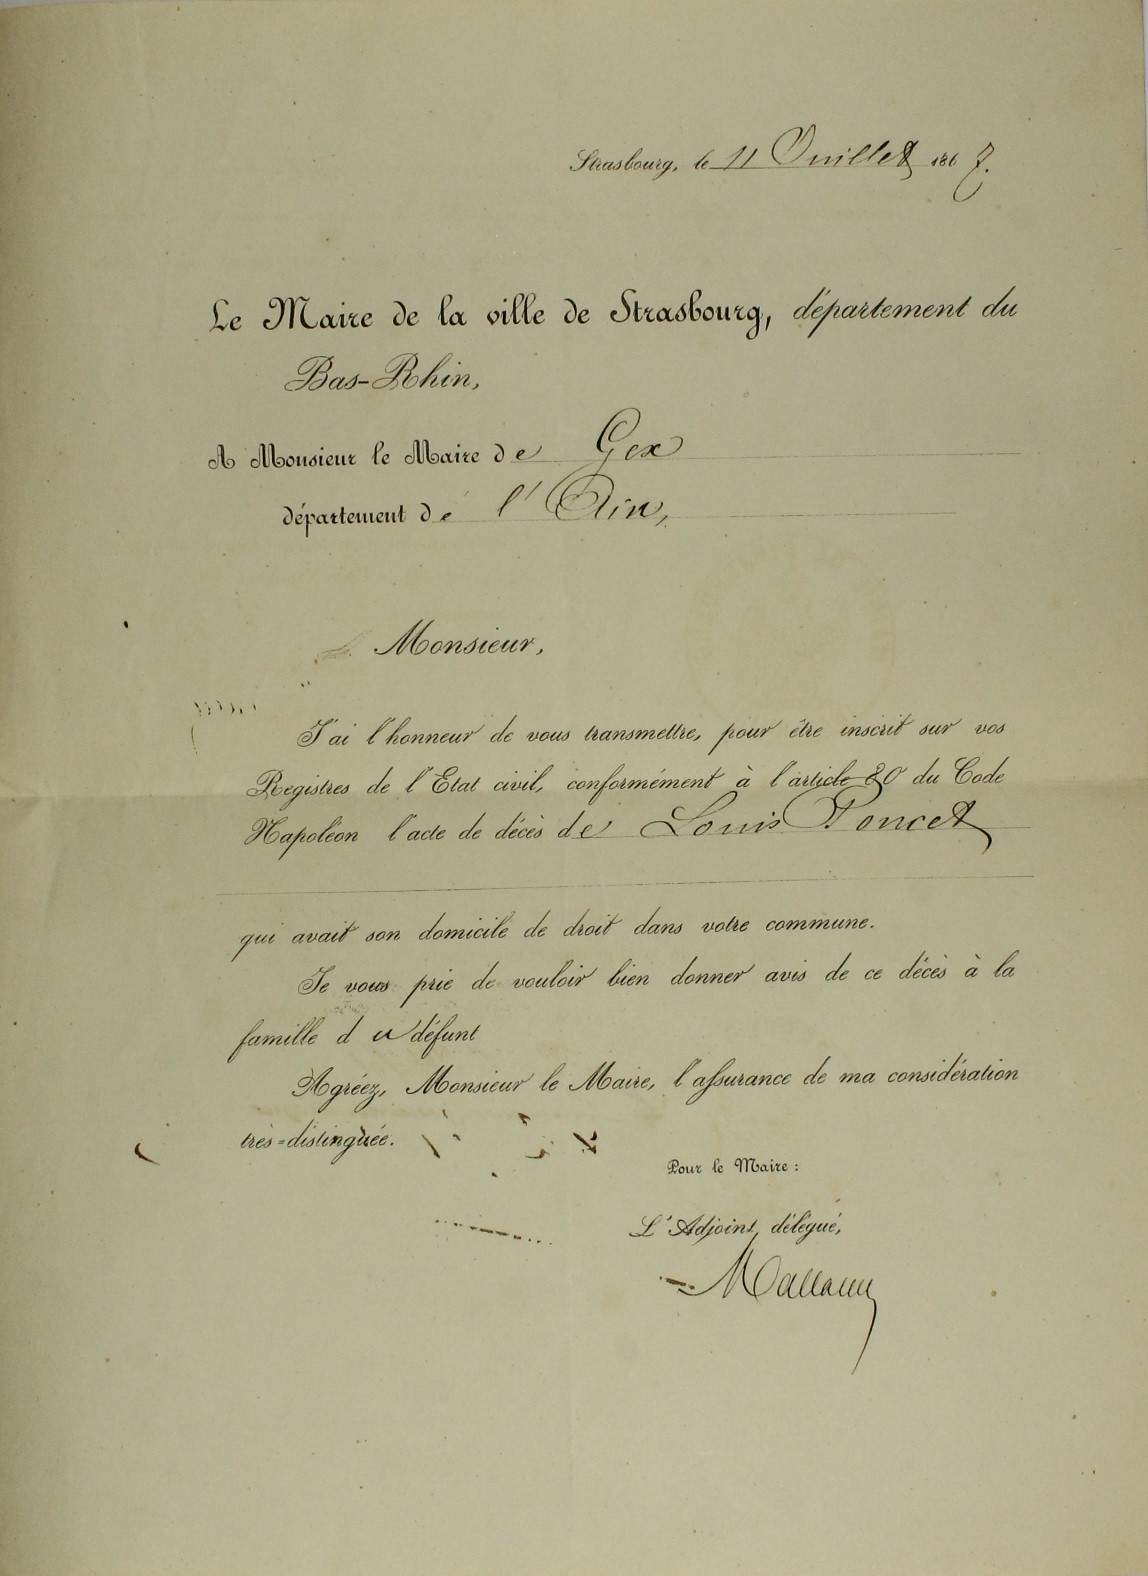 Strasbourg, le 11 Juillet 1867.
Le Maire de la ville de Strasbourg, département du
Bas-Rhin,
A Monsieur le Maire de Gex
département de l'Ain,
Monsieur,
J'ai l'honneur de vous transmettre, pour être inscrit sur vos
Registres de l'Etat civil, conformément à l'article 80 du Code
Napoléon l'acte de décès de Louis Poncet
qui avait son domicile de droit dans votre commune.
Je vous prie de vouloir bien donner avis de ce décès à la
famille du défunt
Agréez, Monsieur le Maire, l'assurance de ma considération
très=distinguée.
Pour le Maire :
L'Adjoint délégué,